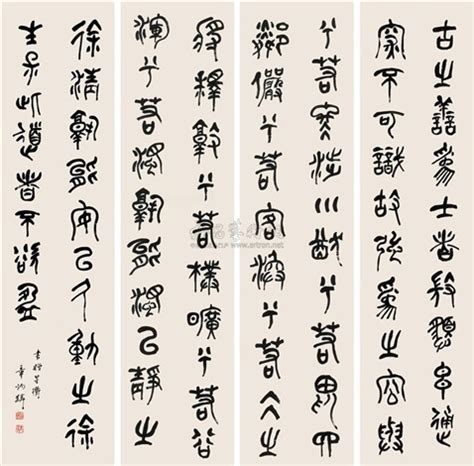 古之善為士者微玄通
深不可識故強為之容與
兮若冬涉川猶兮若畏四
鄰儼兮若客渙兮若冰之
將釋敦兮若樸曠兮若谷
渾兮若濁孰能濁以靜之
徐清孰能安以久動之徐
生保此道者不欲盈
章炳麟
www.artron.net